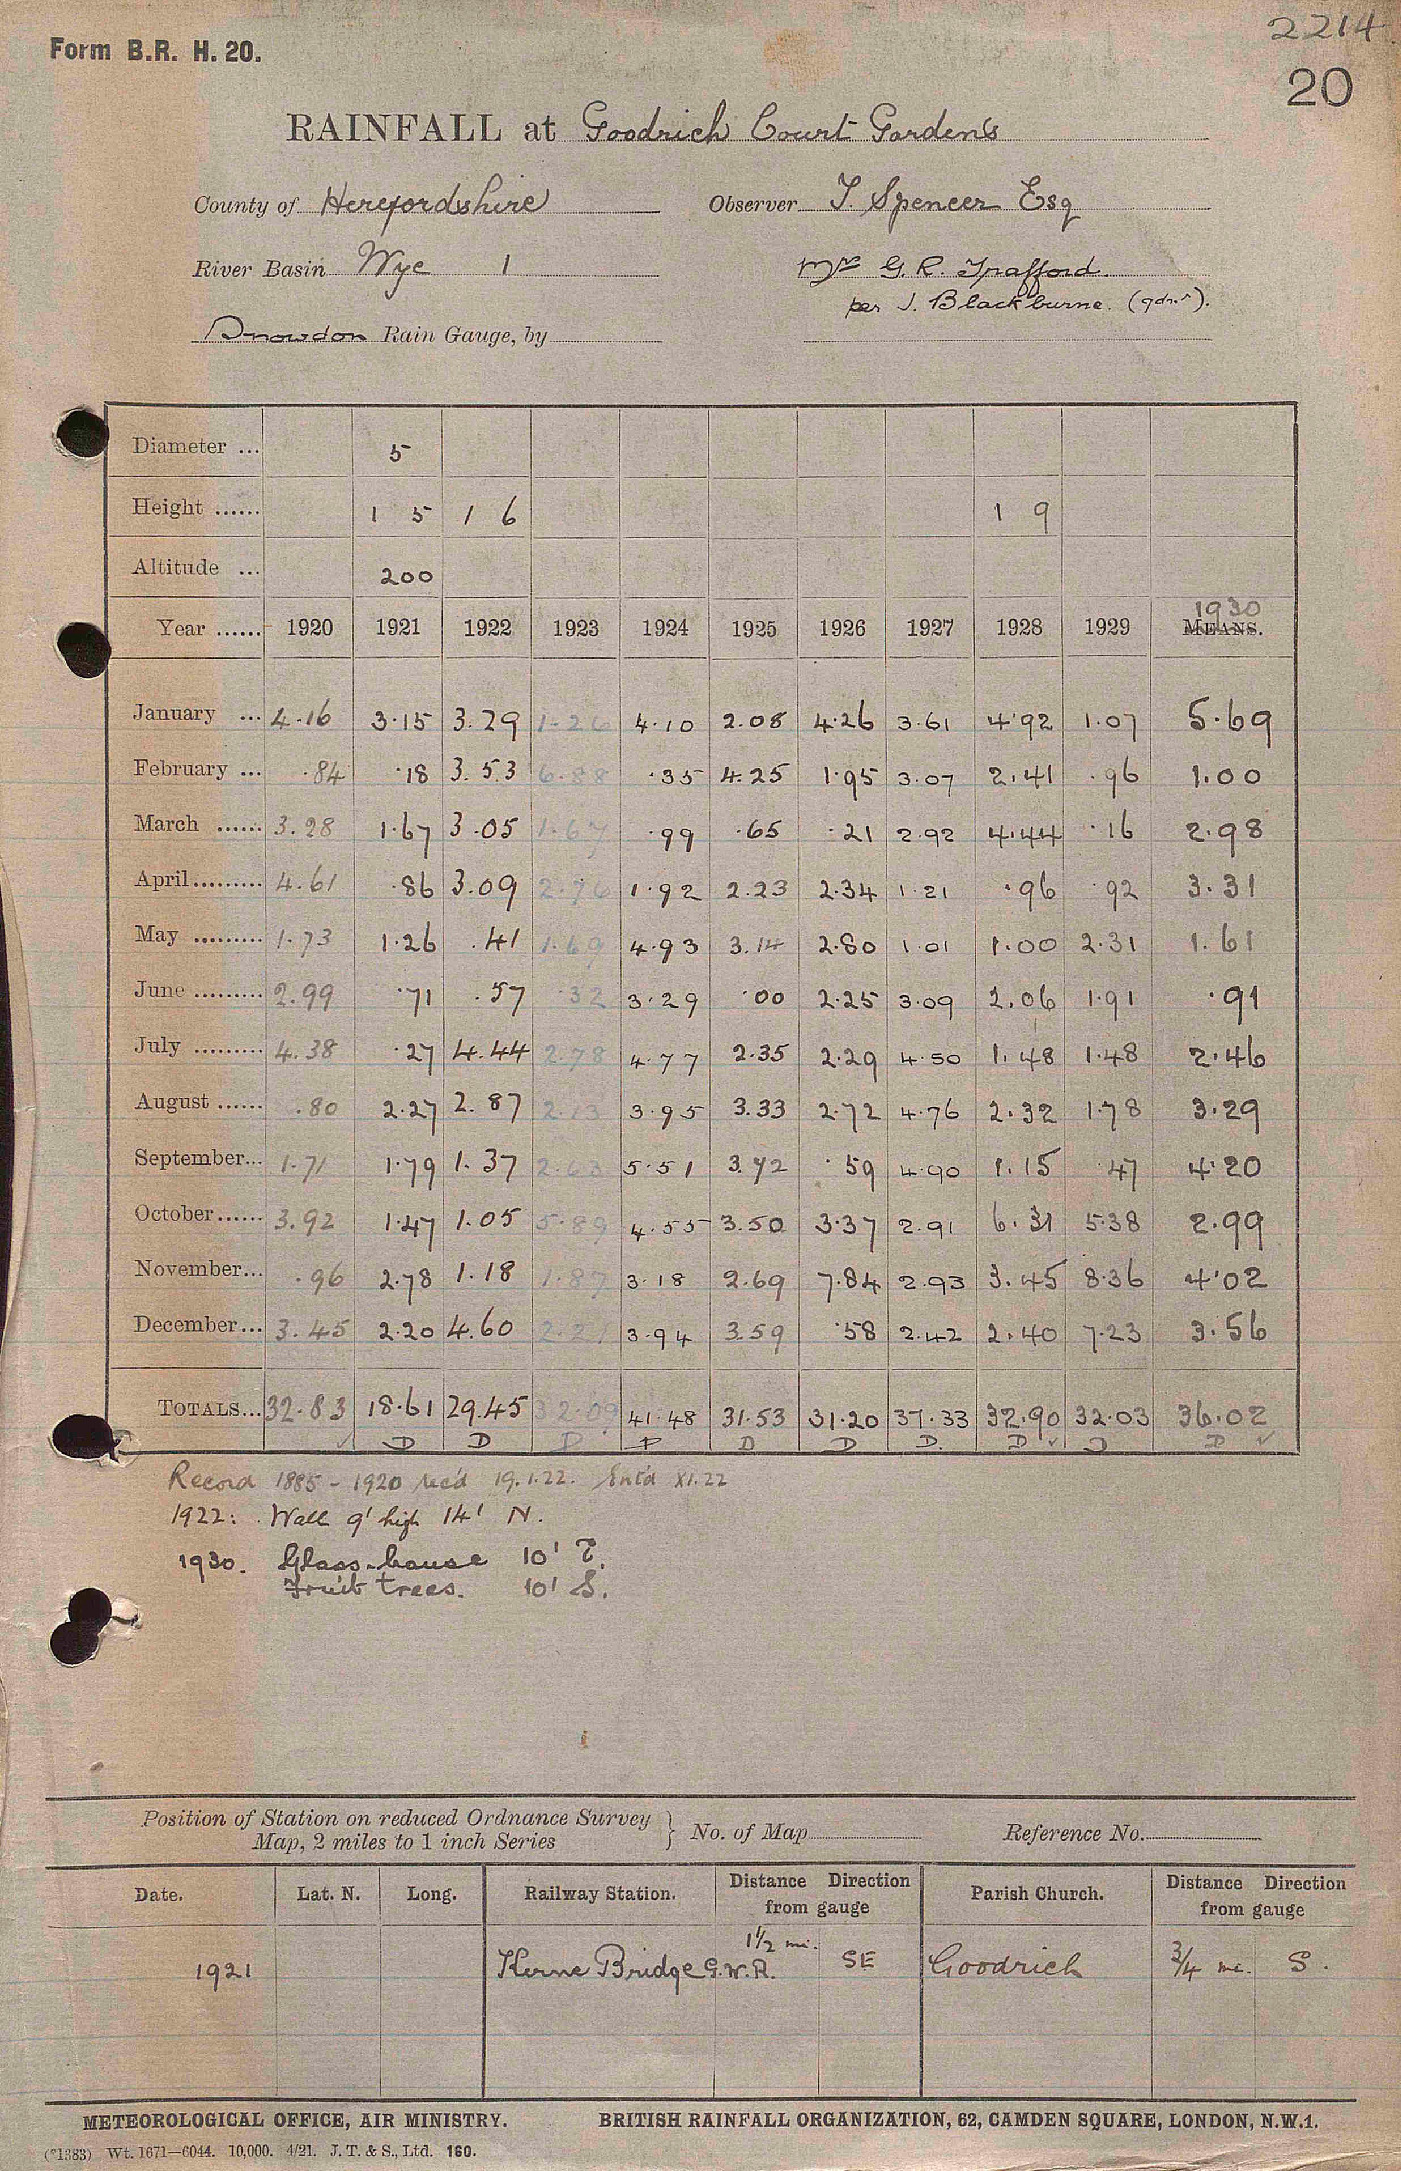 2214
Form B.R. H. 20.
20
RAINFALL at Goodrich Court Gardens
County of Herefordshire Observer J. Spencer Esq
River Basin Wye 1 Mrs G. R. Trafford
per J. Blackburne. (gdnr).
Snowdon Rain Gauge, by
Diameter ... 5
Height ...... 1 5 1 6 1 9
Altitude ... 200
1930
Year ...... 1920 1921 1922 1923 1924 1925 1926 1927 1928 1929 MEANS.
January ... 4.16 3.15 3.29 1.26 4.10 2.08 4.26 3.61 4.92 1.07 5.69
February ... .84 .18 3.53 6.88 .35 4.25 1.95 3.07 2.41 .96 1.00
March ...... 3.28 1.67 3.05 1.67 .99 .65 .21 2.92 4.44 .16 2.98
April ......... 4.61 .86 3.09 2.76 1.92 2.23 2.34 1.21 .96 .92 3.31
May ......... 1.73 1.26 .41 1.69 4.93 3.14 2.80 1.01 1.00 2.31 1.61
June ......... 2.99 .71 .57 .32 3.29 .00 2.25 3.09 2.06 1.91 .91
July ......... 4.38 .27 4.44 2.78 4.77 2.35 2.29 4.50 1.48 1.48 2.46
August ...... .80 2.27 2.87 2.13 3.95 3.33 2.72 4.76 2.32 1.78 3.29
September... 1.71 1.79 1.37 2.63 5.51 3.72 .59 4.90 1.15 .47 4.20
October ...... 3.92 1.47 1.05 5.89 4.55 3.50 3.37 2.91 6.31 5.38 2.99
November... .96 2.78 1.18 1.87 3.18 2.69 7.84 2.93 3.45 8.36 4.02
December... 3.45 2.20 4.60 2.21 3.94 3.59 .58 2.42 2.40 7.23 3.56
TOTALS... 32.83 18.61 29.45 32.09 41.48 31.53 31.20 37.33 32.90 32.03 36.02
D D D D D D D. D D D
Record 1885 - 1920 rec'd 19.1.22. Ent'd XI.22
1922: Wall 9' high 14' N.
1930. Glass-house 10' E.
Fruit trees. 10' S.
Position of Station on reduced Ordnance Survey
Map, 2 miles to 1 inch Series } No. of Map Reference No.
Date. Lat. N. Long. Railway Station. Distance Direction from gauge Parish Church. Distance Direction from gauge
1921 Kerne Bridge G.W.R. 1 1/2 mi. SE Goodrich 3/4 mi. S.
METEOROLOGICAL OFFICE, AIR MINISTRY. BRITISH RAINFALL ORGANIZATION, 62, CAMDEN SQUARE, LONDON, N.W.1.
(*1383) Wt. 1671—6044. 10,000. 4/21. J. T. & S., Ltd. 160.